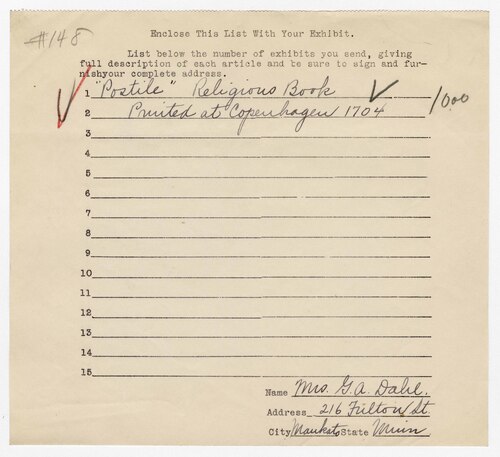 #148
Enclose This List With Your Exhibit.
List below the number of exhibits you send, giving
full description of each article and be sure to sign and fur-
nishyour complete address.
1 "Postile" Religious Book
2 Printed at Copenhagen 1704 1000
3
4
5
6
7
8
9
10
11
12
13
14
15
Name Mrs. G. A. Dahl.
Address 216 Fulton St.
City Mankato State Minn.